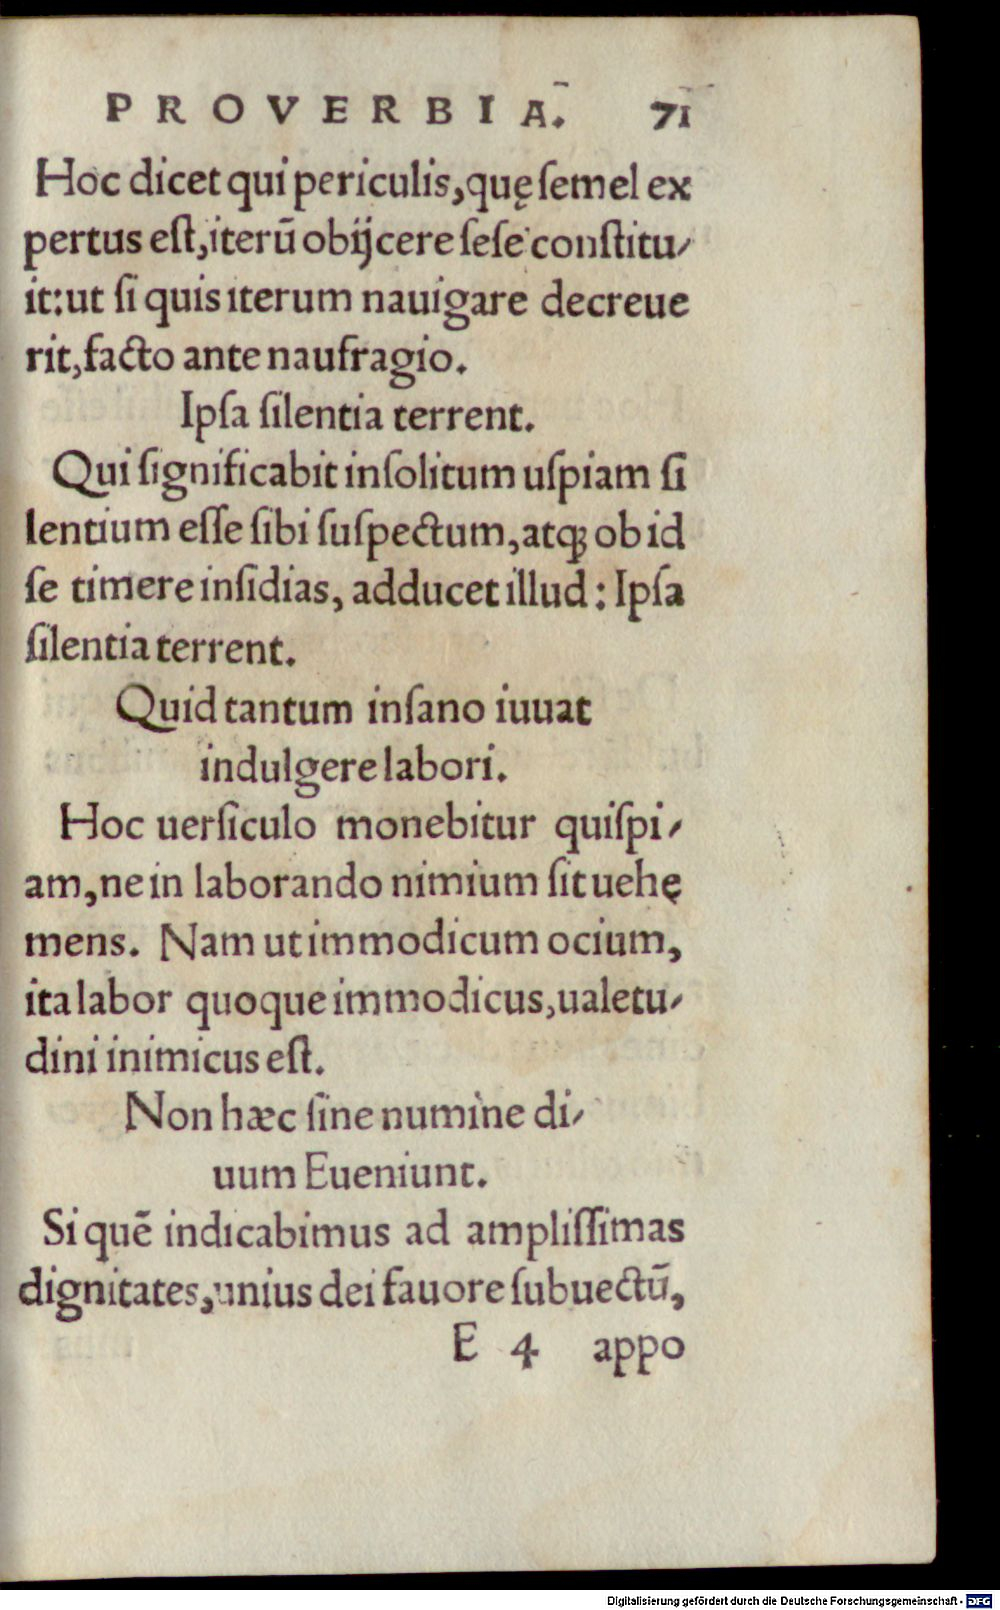 PROVERBIA. 71
Hoc dicet qui periculis, quę ſemel ex
pertus eſt, iterū obijcere ſeſe conſtitu/
it: ut ſi quis iterum nauigare decreue
rit, facto ante naufragio.
Ipſa ſilentia terrent.
Qui ſignificabit inſolitum uſpiam ſi
lentium eſſe ſibi ſuſpectum, atq; ob id
ſe timere inſidias, adducet illud: Ipſa
ſilentia terrent.
Quid tantum inſano iuuat
indulgere labori.
Hoc uerſiculo monebitur quiſpi/
am, ne in laborando nimium ſit uehę
mens. Nam ut immodicum ocium,
ita labor quoque immodicus, ualetu/
dini inimicus eſt.
Non hæc ſine numine di/
uum Eueniunt.
Si quē indicabimus ad ampliſſimas
dignitates, unius dei fauore ſubuectū,
E 4 appo
Digitalisierung gefördert durch die Deutsche Forschungsgemeinschaft - DFG